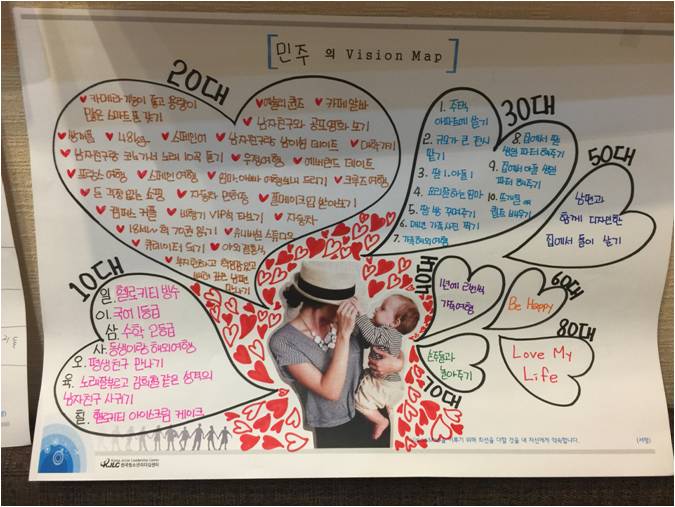 [민주 의 Vision Map]
20대
♥ 카메라 기능이 좋고 용량이
많은 스마트폰 갖기
♥ 렌즈 ♥ 카페 알바
♥ 남자친구와 공포영화 보기
♥ 쌍커풀 ♥ 48kg ♥ 스페인어 ♥ 남자친구랑 놀이공원 데이트 ♥ 대학가기
♥ 남자친구랑 코인가서 노래 10곡 듣기 ♥ 우정여행 ♥ 에버랜드 데이트
♥ 프랑스 여행 ♥ 스페인 여행 ♥ 엄마, 아빠 여행보내 드리기 ♥ 크루즈여행
♥ 돈 걱정 없는 쇼핑 ♥ 자동차 면허증 ♥ 풀메이크업 받아보기
♥ 캠퍼스 커플 ♥ 비행기 VIP석 타보기 ♥ 자동차
♥ 책 70권 읽기 ♥ 유니버셜 스튜디오
♥ 큐레이터 되기
만나기
30대
1. 주택
아파트에 살기
2. 규모가 큰 전시
맡기
3. 딸 1, 아들 1
4. 요리잘하는 엄마
5. 딸 방 꾸며주기
6. 매년 가족사진 찍기
7. 가족해외여행
8. 집에서 딸
생일 파티 해주기
9. 집에서 아들 생일
파티 해주기
10. 뜨개질 or
퀼트 배우기
50대
남편과
함께 디자인한
집에서 둘이 살기
10대
일. 헬로키티 빙수
이. 국어 1등급
삼. 수학 2등급
사. 동생이랑 해외여행
오. 평생친구 만나기
육. 노래잘부르고 같은 성격의
남자친구 사귀기
칠. 헬로키티 아이스크림 케이크
40대
1년에 한번씩
가족여행
60대
Be Happy
70대
손주들과
놀아주기
80대
Love My
Life
이루기 위해 최선을 다할 것을 내 자신에게 약속합니다.
(서명)
KJLC
Korea Junior Leadership Center
한국청소년리더십센터